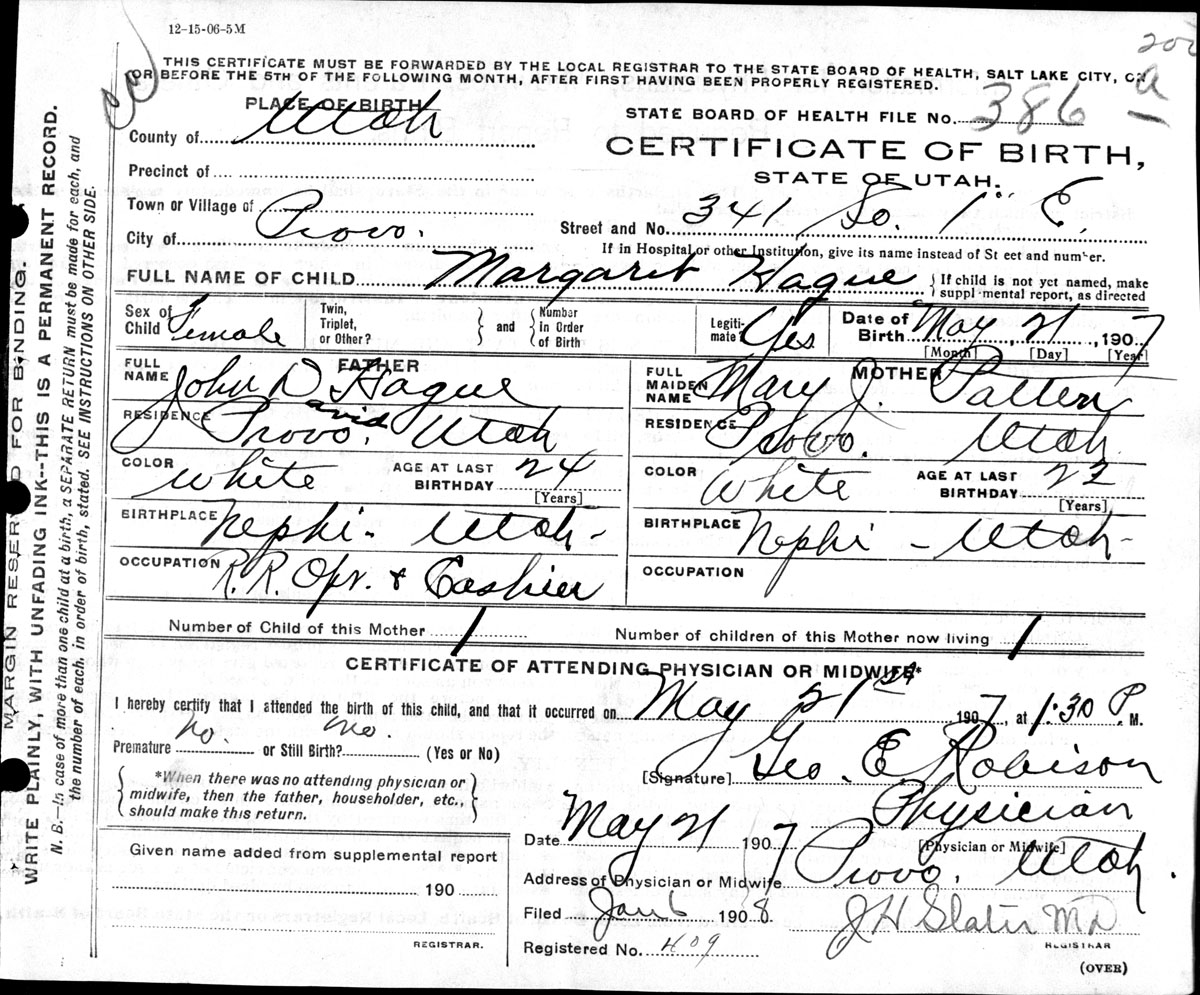 12-15-06-5M
200
a
THIS CERTIFICATE MUST BE FORWARDED BY THE LOCAL REGISTRAR TO THE STATE BOARD OF HEALTH, SALT LAKE CITY, ON
OR BEFORE THE 5TH OF THE FOLLOWING MONTH, AFTER FIRST HAVING BEEN PROPERLY REGISTERED.
PLACE OF BIRTH
County of Utah
STATE BOARD OF HEALTH FILE No. 386
CERTIFICATE OF BIRTH,
STATE OF UTAH.
Precinct of
Town or Village of
City of Provo.
Street and No. 341 So. 1st E.
If in Hospital or other Institution, give its name instead of St eet and number.
FULL NAME OF CHILD Margaret Hague
If child is not yet named, make
suppl mental report, as directed
Sex of Child Female
Twin, Triplet, or Other?
and
Number in Order of Birth
Legiti- mate? Yes
Date of Birth May 21, 1907
[Month] [Day] [Year]
FATHER
FULL NAME John D Hague
avid
RESIDENCE Provo. Utah
COLOR White AGE AT LAST BIRTHDAY 24
[Years]
BIRTHPLACE Nephi - Utah -
OCCUPATION R.R. Opr. & Cashier
MOTHER
FULL MAIDEN NAME Mary J. Patten
RESIDENCE Provo. Utah
COLOR White AGE AT LAST BIRTHDAY 22
[Years]
BIRTHPLACE Nephi - Utah -
OCCUPATION
Number of Child of this Mother 1
Number of children of this Mother now living 1
CERTIFICATE OF ATTENDING PHYSICIAN OR MIDWIFE*
I hereby certify that I attended the birth of this child, and that it occurred on May 21st 1907, at 1:30 P. M.
Premature No. or Still Birth? No. (Yes or No)
*When there was no attending physician or
midwife, then the father, householder, etc.,
should make this return.
[Signature] Geo. E. Robison
Physician
[Physician or Midwife]
Date May 21 1907
Given name added from supplemental report
190
REGISTRAR.
Address of Physician or Midwife Provo, Utah.
Filed Jan 6 1908.
J H Slater MD
REGISTRAR
Registered No. 409
(OVER)
MARGIN RESER D FOR BINDING.
WRITE PLAINLY, WITH UNFADING INK--THIS IS A PERMANENT RECORD.
N. B.—In case of more than one child at a birth, a SEPARATE RETURN must be made for each, and
the number of each, in order of birth, stated. SEE INSTRUCTIONS ON OTHER SIDE.